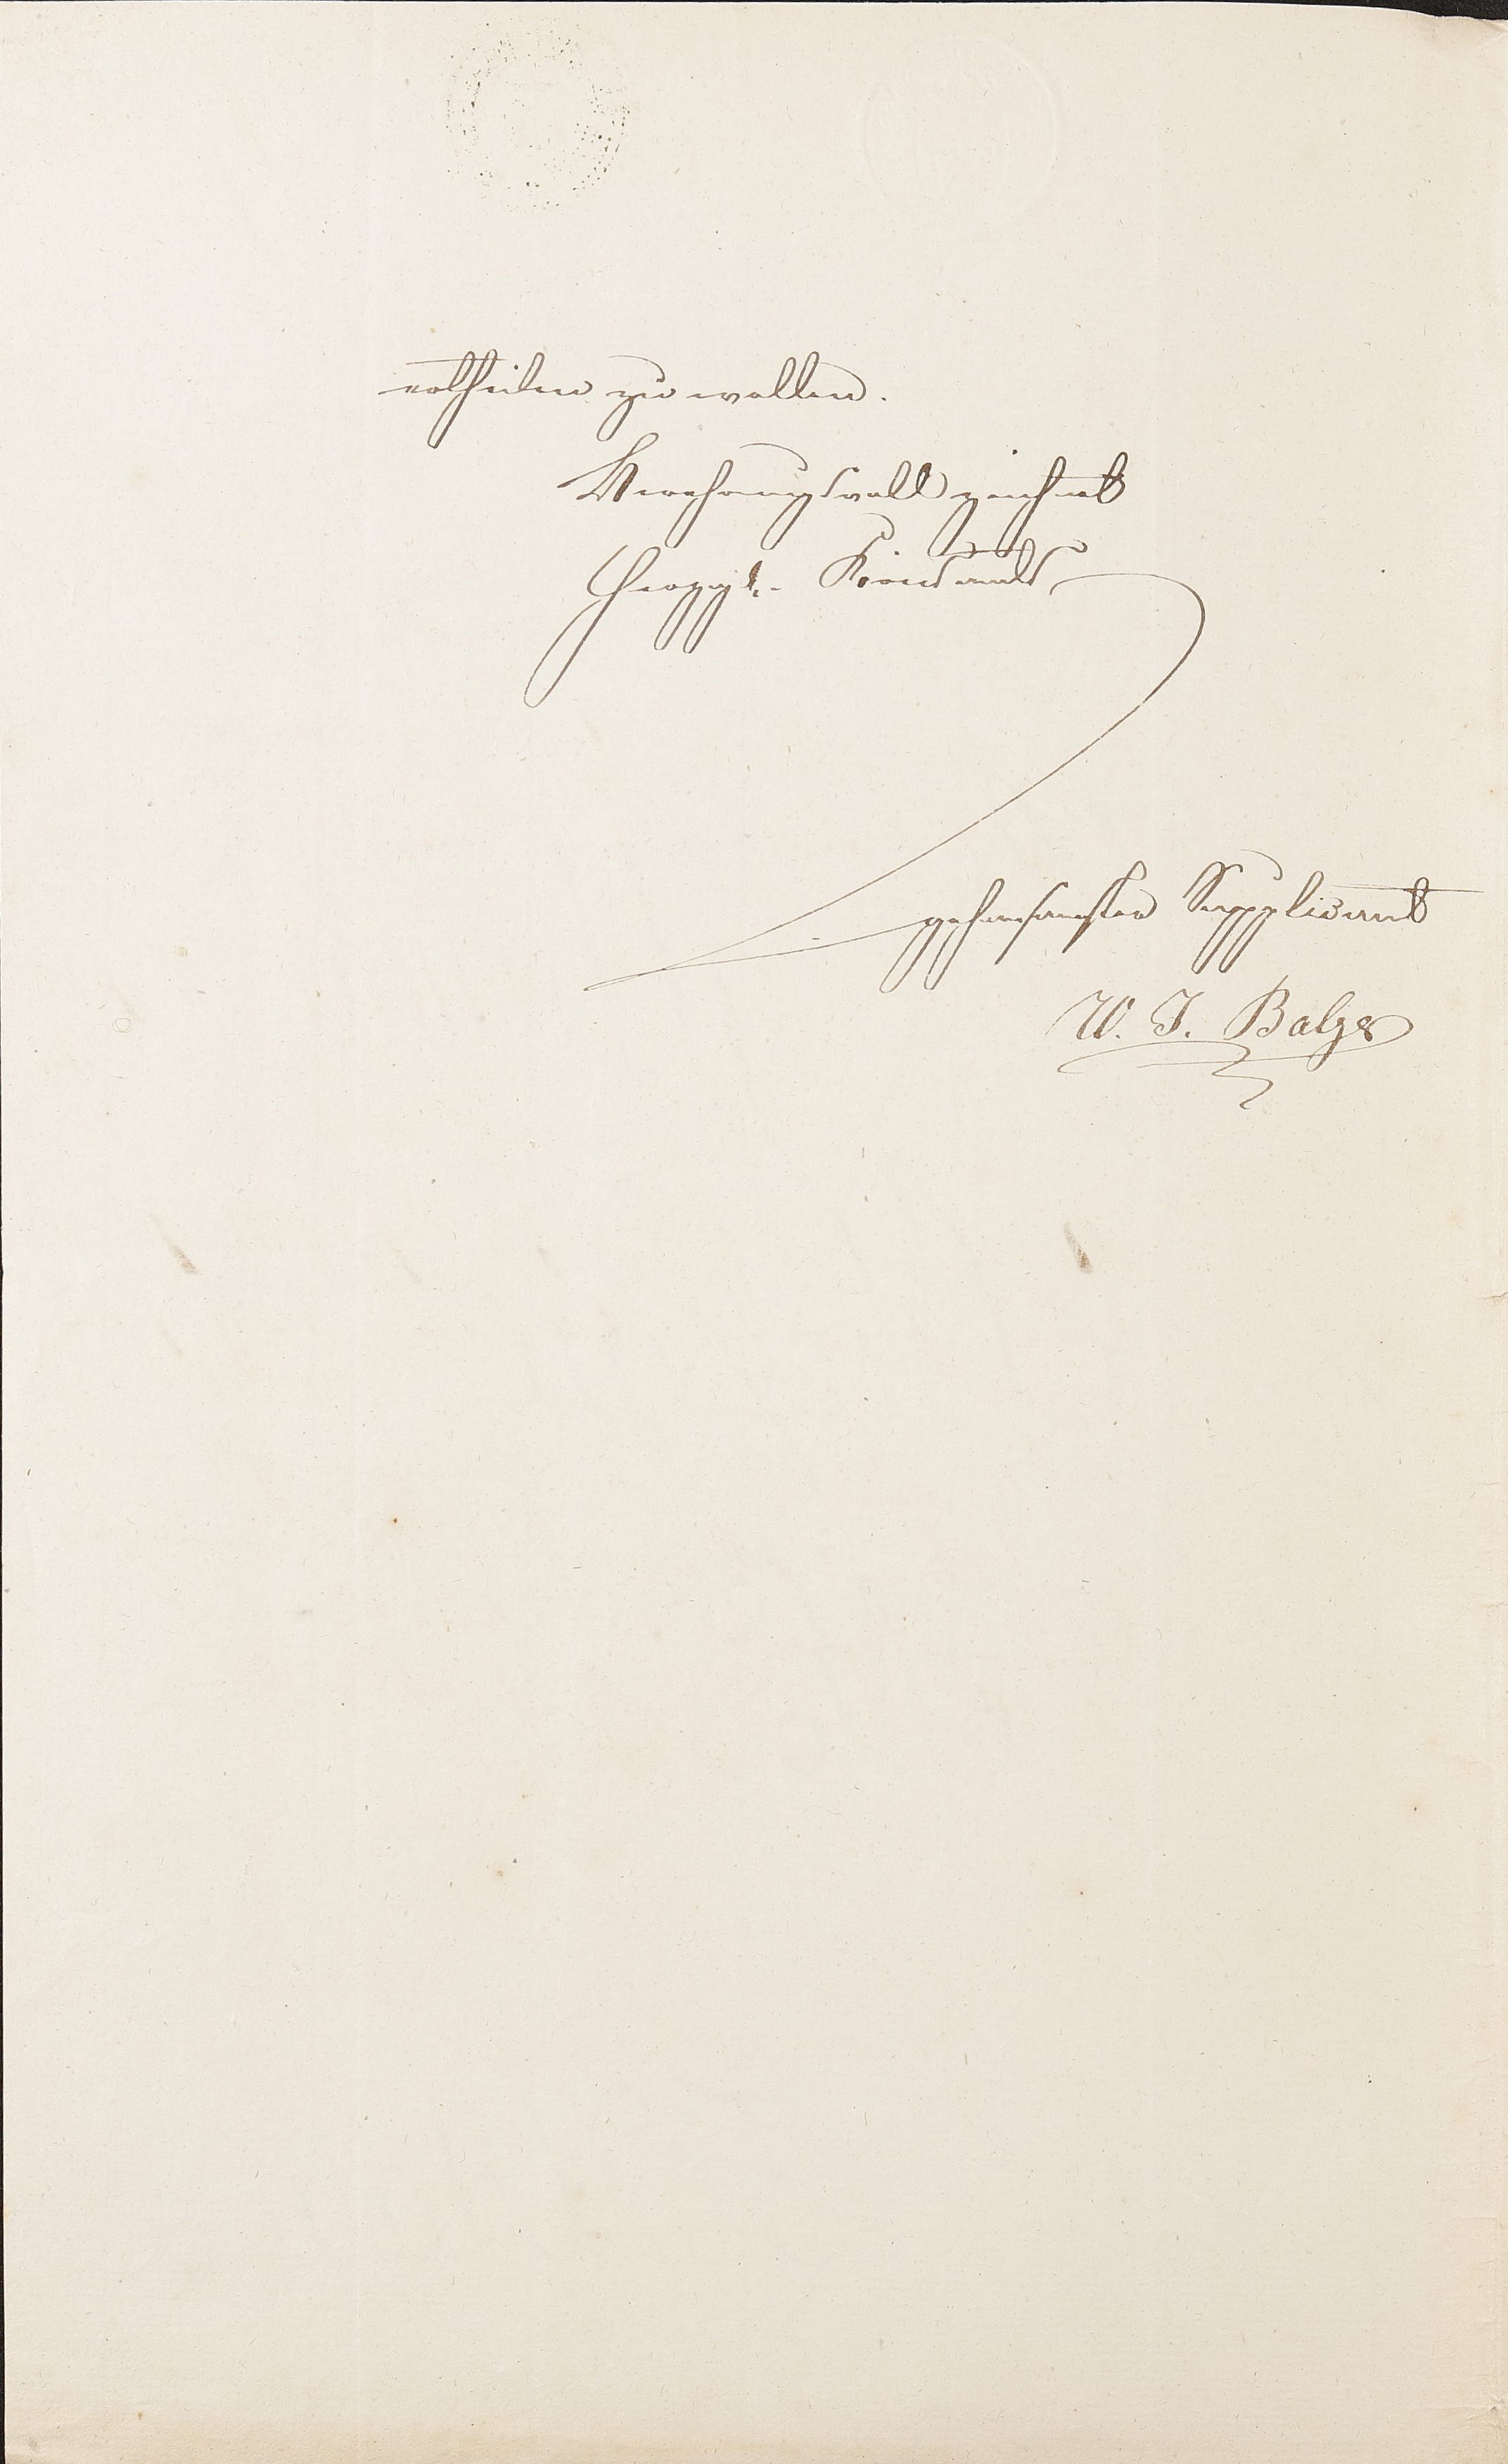 ertheilen zu wollen.
Verehrungsvoll zeichnet
Großh. Kreisamts
gehorsamster Supplicant
W. J. Balzer